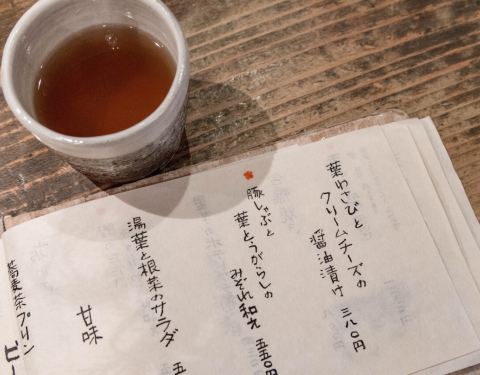 葉わさびと
クリームチーズの
醤油漬け 三八〇円
豚しゃぶと
葉とうがらしの
みぞれ和え 五五〇円
湯葉と根菜のサラダ 五
甘味
蕎麦茶プリン
ビー